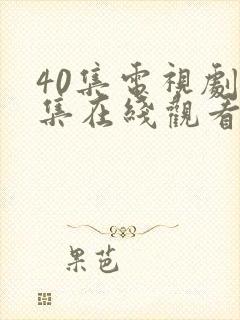 40集電視劇
集在綫觀看
果芭